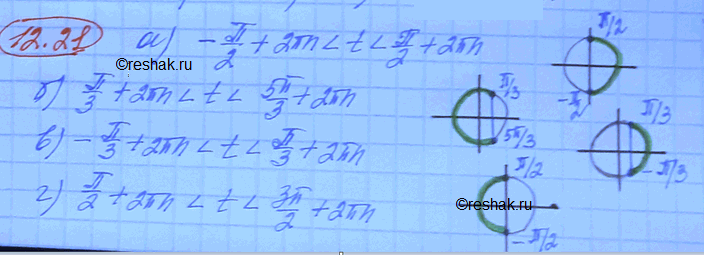 12.21 а) -π/2 + 2πn < t < π/2 + 2πn
©reshak.ru
б) π/3 + 2πn < t < 5π/3 + 2πn
в) -π/3 + 2πn < t < π/3 + 2πn
г) π/2 + 2πn < t < 3π/2 + 2πn
π/2
-π/2
π/3
5π/3
π/3
-π/3
π/2
©reshak.ru
-π/2